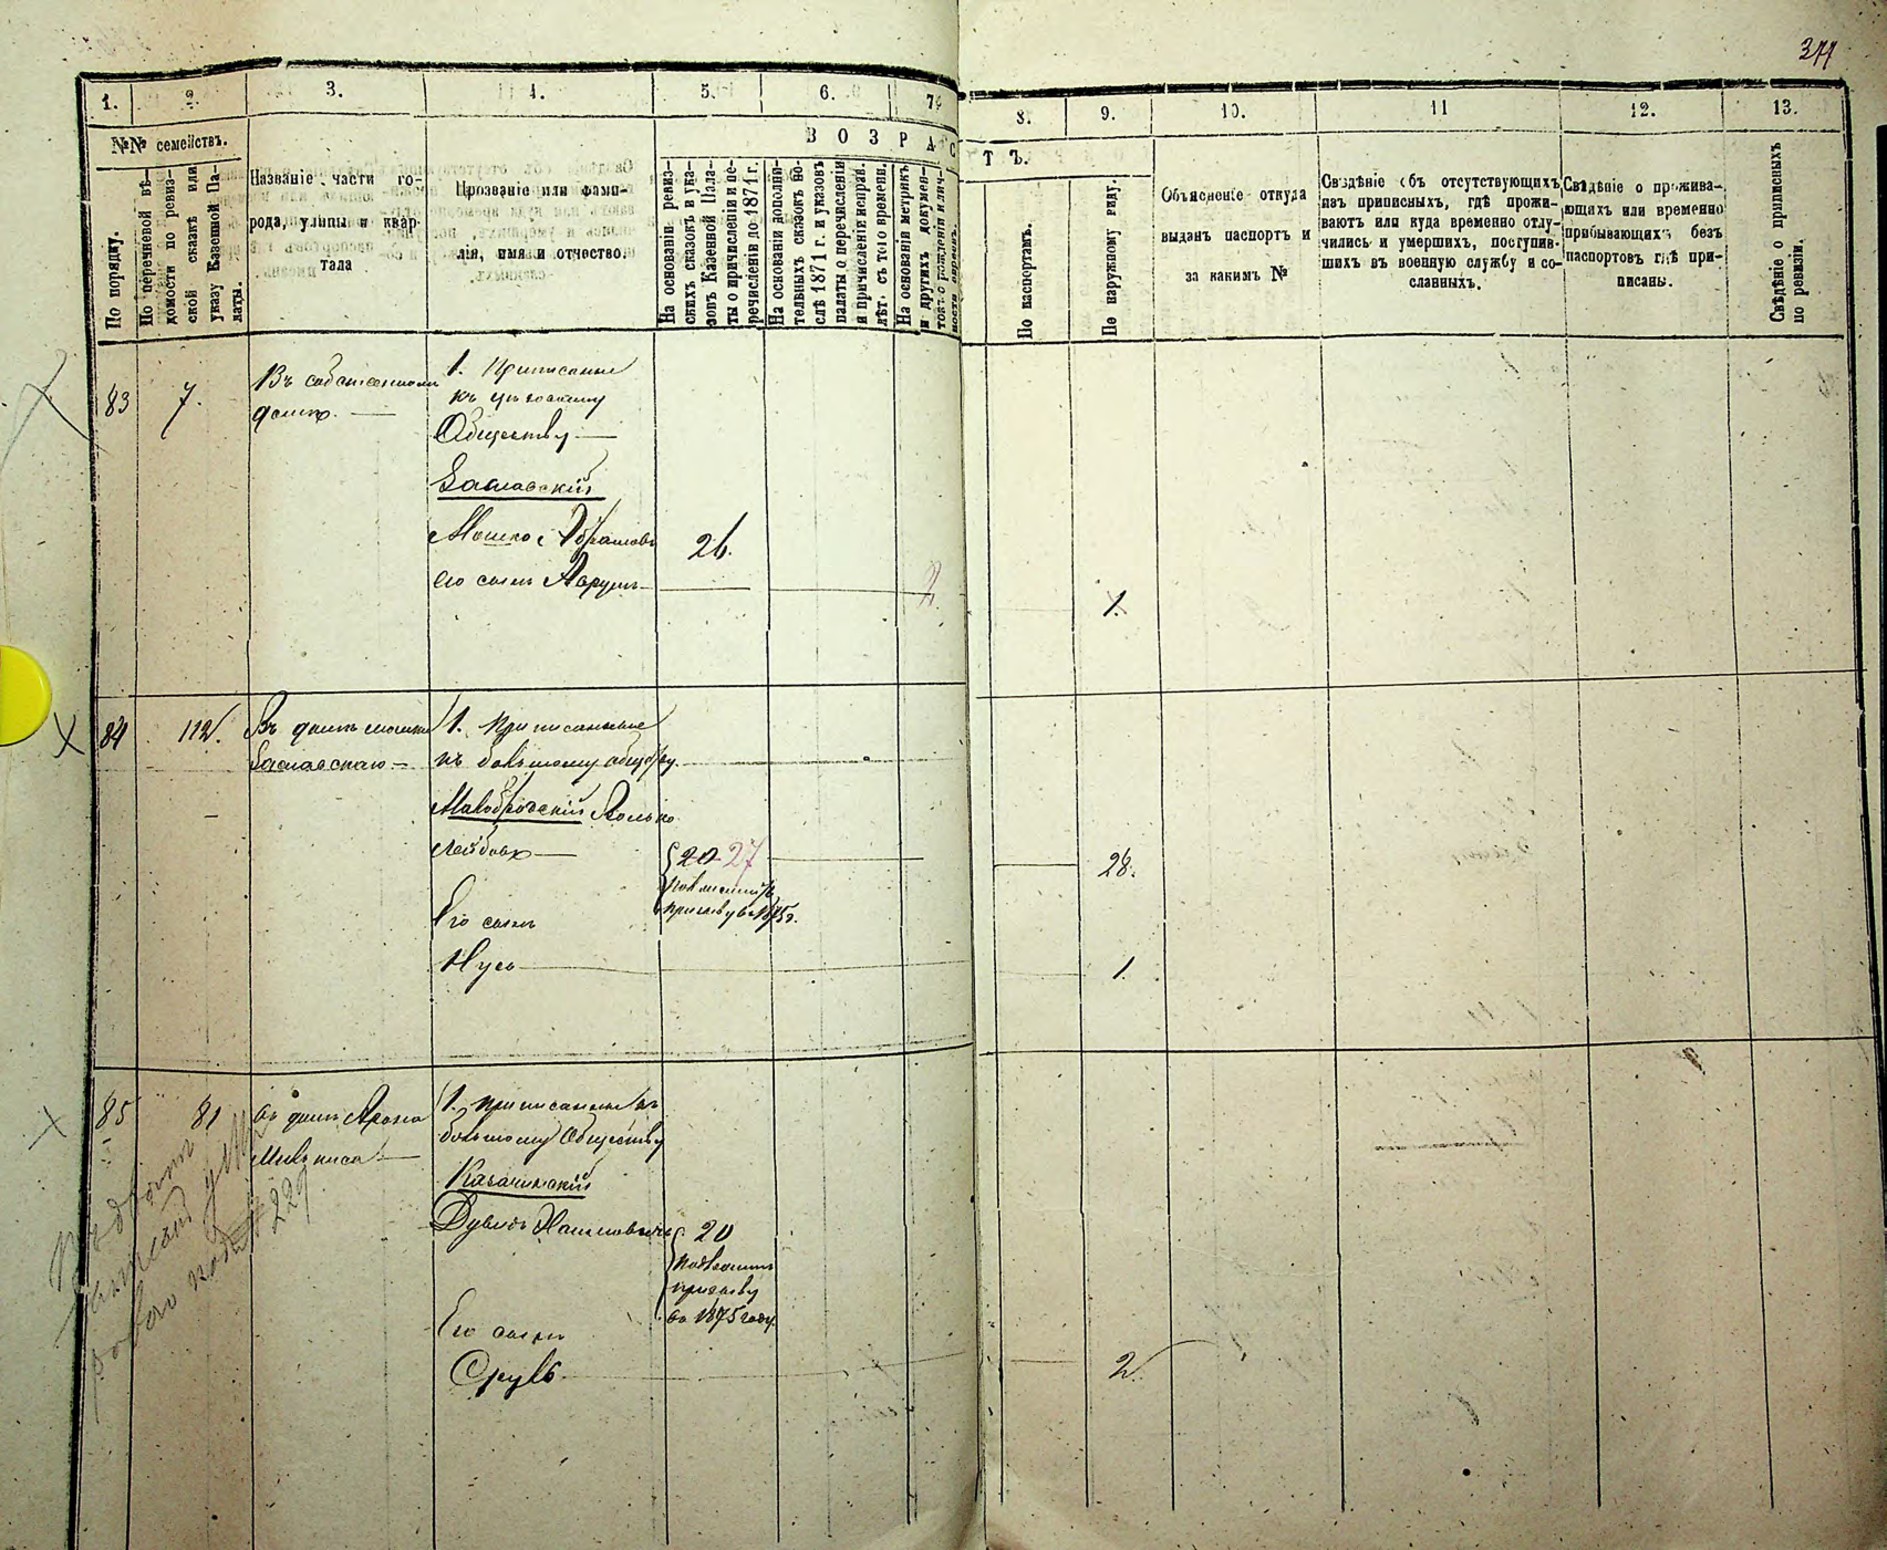 377
1. 2. 3. 4. 5. 6. 7. 8. 9. 10. 11 12. 13.
№№ семействъ.
ВОЗРАСТЪ.
По порядку.
По перечневой вѣ-
домости по ревиз-
ской сказкѣ или
указу Казенной Па-
латы.
Названіе части го-
рода, улицы и квар-
тала
Прозваніе или фами-
лія, имя и отчество.
На основаніи ревиз-
скихъ сказокъ и ука-
зовъ Казенной Пала-
ты о причисленіи и пе-
речисленіи до 1871 г.
На основаніи дополни-
тельныхъ сказокъ по-
слѣ 1871 г. и указовъ
палаты о перечисленіи
и причисленіе исправ.
лѣт. съ того времени.
На основаніи метрикъ
и другихъ докумен-
товъ о рожденіи и лич-
ности евреевъ.
По паспортамъ.
По наружному виду.
Объясненіе откуда
выданъ паспортъ и
за какимъ №
Свѣдѣніе объ отсутствующихъ
изъ приписныхъ, гдѣ прожи-
ваютъ или куда временно отлу-
чились и умершихъ, поступив-
шихъ въ военную службу и со-
сланныхъ.
Свѣдѣніе о прожива-
ющихъ или временно
прибывающихъ безъ
паспортовъ гдѣ при-
писаны.
Свѣдѣніе о приписныхъ
по ревизіи.
83 7. Въ собственномъ
домѣ.
1. Приписанные
къ
Обществу
Заславскій
Мошко Абрамовъ 26.
его сынъ Аврумъ 2. 1.
84 112. Въ домѣ Мошки
Заславскаго
1. Приписанные
къ большому общству.
Малобродскій
Лейбовъ 20 27 28.
подлежитъ
призыву въ 1875 г.
Его сынъ
Нусь 1.
85 81 въ домѣ Арона
Милькиса
1. приписанные къ
большому Обществу
Дувидъ Хаимовичъ 20
подлежитъ
призыву
въ 1875 году.
Его сынъ
Сруль 2
229